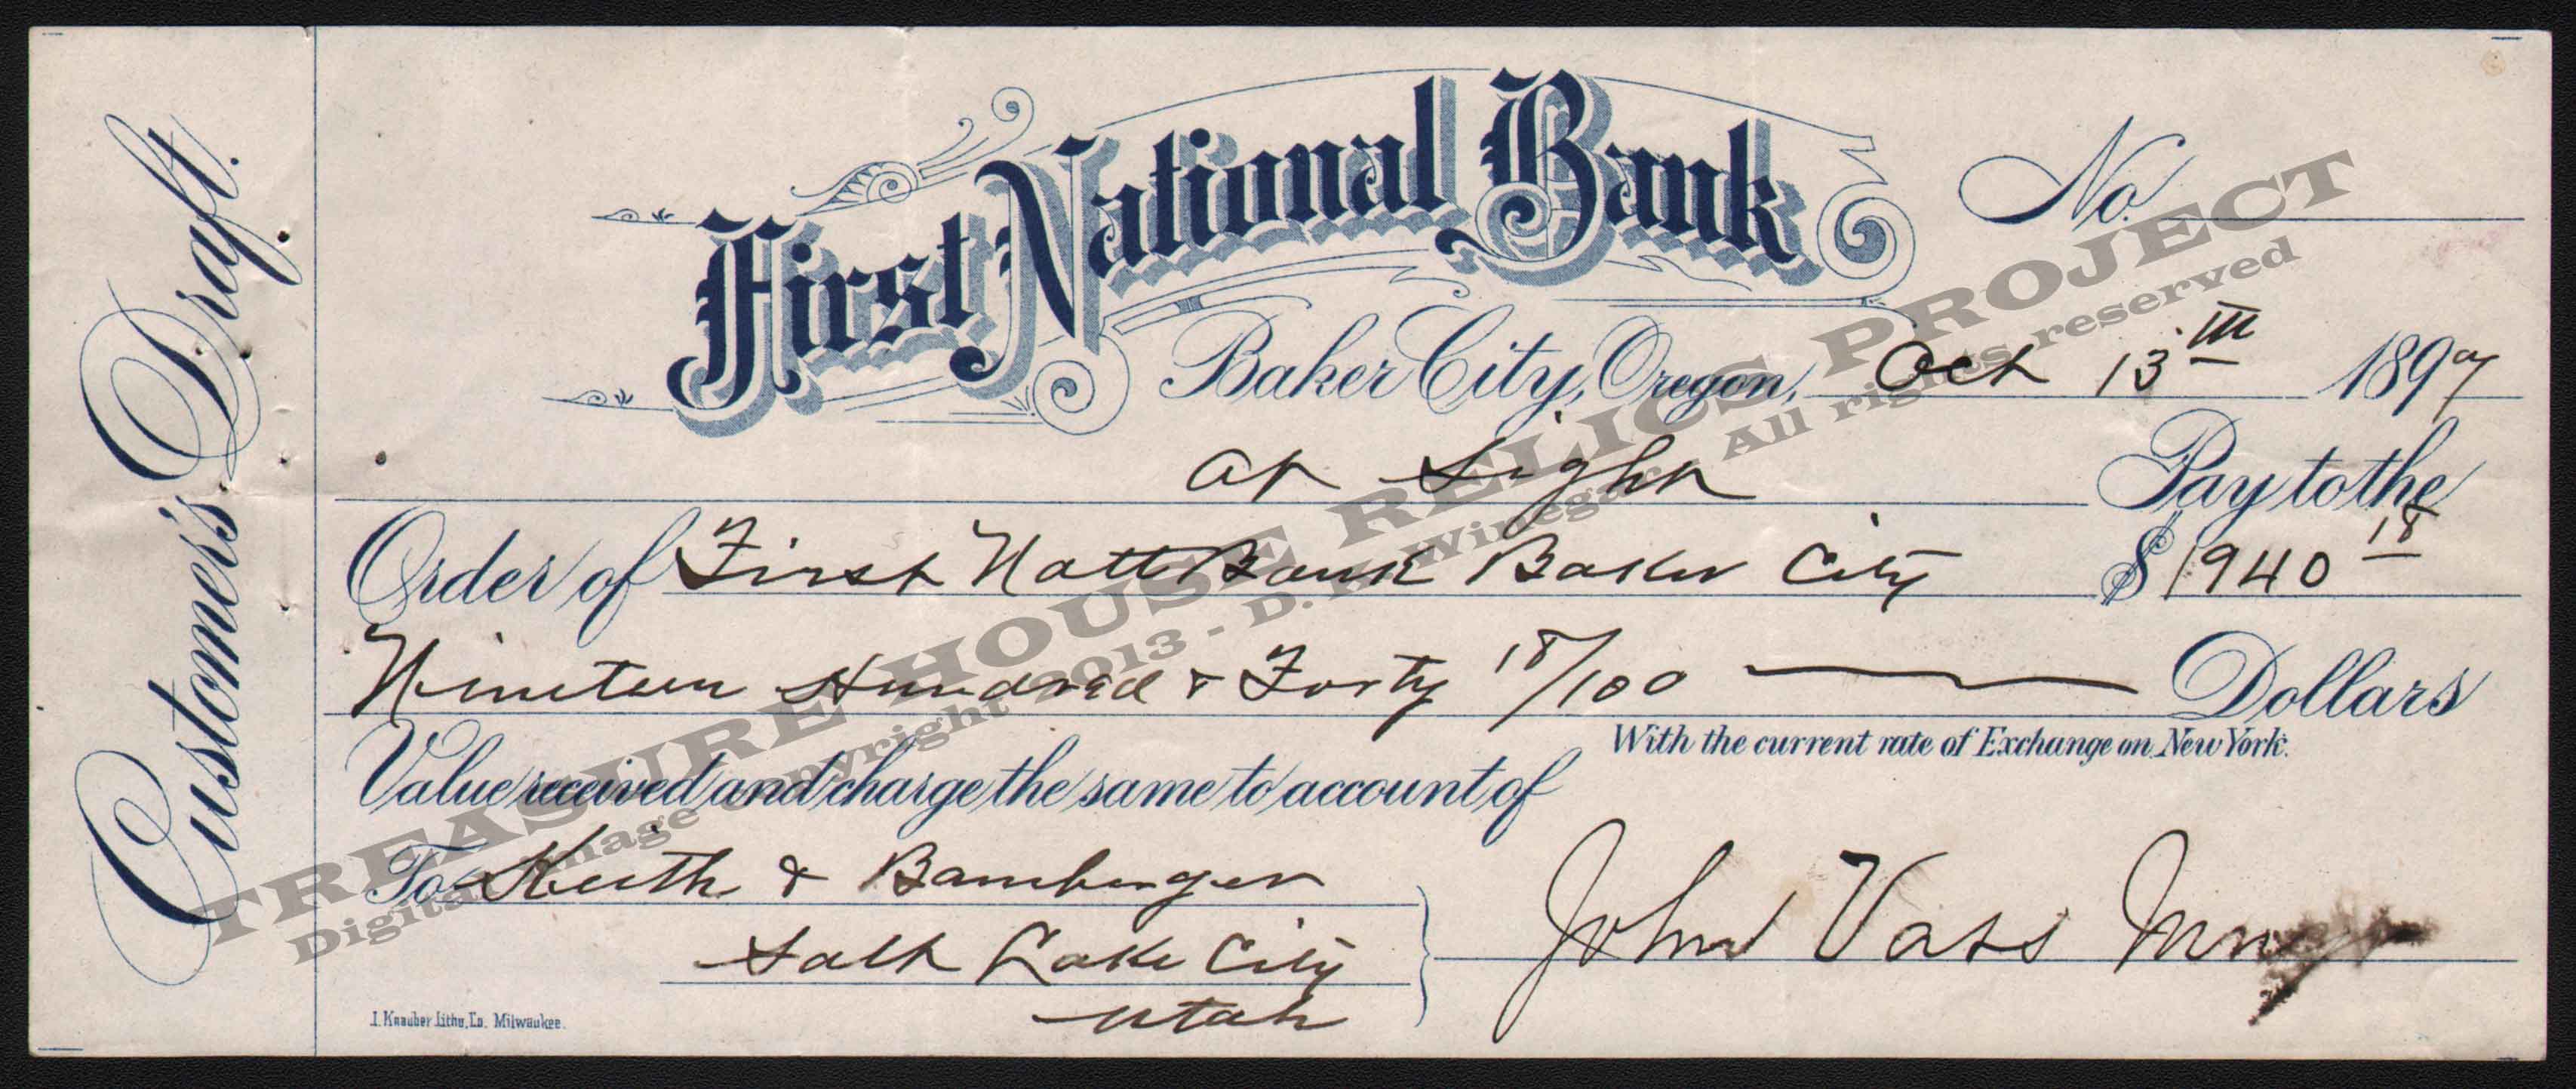 Customer's Draft.
First National Bank
No.
Baker City, Oregon, Oct 13th 1897
at Sight Pay to the
Order of First Natl Bank Baker City $1940 18
Nineteen Hundred & Forty 18/100 Dollars
With the current rate of Exchange on New York.
Value received and charge the same to account of
To Keith & Bamberger
Salt Lake City
Utah
John Vass
J. Knauber Litho. Co. Milwaukee.
TREASURE HOUSE RELICS PROJECT
Digital Image Copyright 2013 - D. A. Winegar - All rights reserved